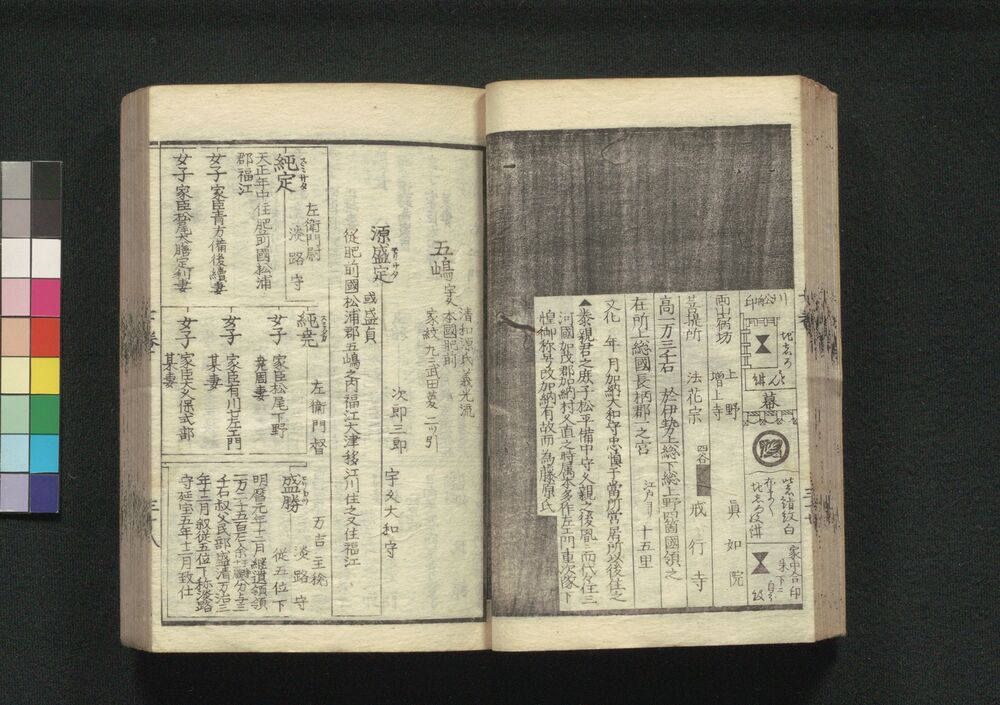 川船印
地志ろ
幕
紫絹紋白
家中合印
両山宿坊
上野 眞如院
増上寺
菩提所 法花宗 四谷 戒行寺
高一万三千石 於伊勢上総下総上野四箇國領之
在所上総國長柄郡一之宮 江戸ヨリ 十五里
文化 年月加納大和守忠愼于當所営居所以後住之
▲泰親君之庶子松平備中守久親之後胤二而代々住三
河國加茂郡加納村久直之時属本多作左エ門重次麾下
惶御称号改加納有故而為藤原氏
清和源氏義光流
五嶋 本國肥前
家紋 九ニ武田菱 二ツ引
源盛定 次郎三郎 宇久大和守
或盛貞
從肥前國松浦郡五嶋之内福江大津移江川住之又住福江
純定 左衛門尉
淡路守
天正年中住肥前國松浦
郡福江
女子 家臣青方備後續妻
女子 家臣松尾大膳定利妻
純尭 左衛門督
女子 家臣松尾下野
尭周妻
女子 家臣有川甘左エ門
某妻
女子 家臣大久保式部
某妻
盛勝 万吉 主税
淡路守
從五位下
明暦元年十二月継遺領領
一万二千五百石余
千石叔父民部盛清万治三
年十二月叙從五位下称淡路
守延宝五年十二月致仕